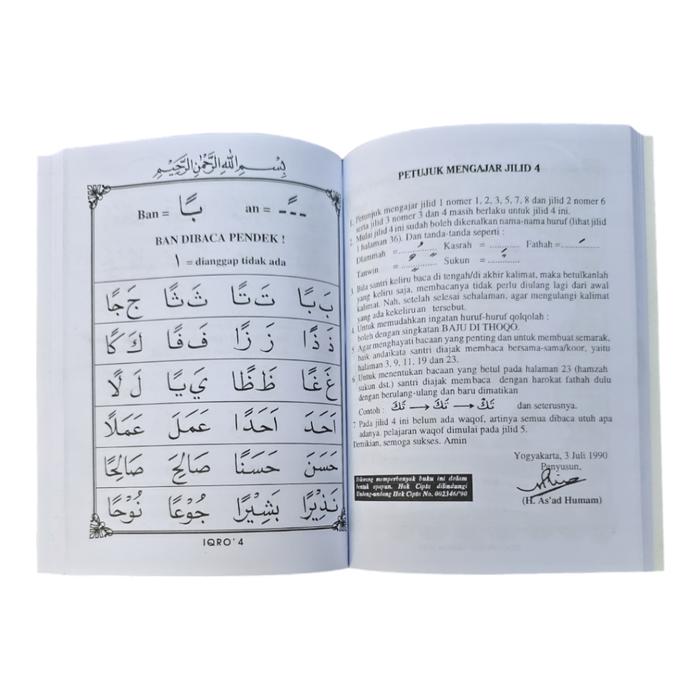 بِسْمِ اللهِ الرَّحْمٰنِ الرَّحِيْمِ
Ban = بًا an = ـًـ
BAN DIBACA PENDEK !
ا = dianggap tidak ada
بَ بًا تَ تًا ثَ ثًا جَ جًا
ذَ ذًا زَ زًا فَ فًا كَ كًا
غَ غًا ظَ ظًا يَ يًا لَ لًا
اَحَدَ اَحَدًا عَمَلَ عَمَلًا
حَسَنَ حَسَنًا صَالِحَ صَالِحًا
نَذِيْرًا بَشِيْرًا جُوْعًا نُوْحًا
IQRO' 4
PETUJUK MENGAJAR JILID 4
1. Petunjuk mengajar jilid 1 nomer 1, 2, 3, 5, 7, 8 dan jilid 2 nomer 6
serta jilid 3 nomer 3 dan 4 masih berlaku untuk jilid 4 ini.
2. Mulai jilid 4 ini sudah boleh dikenalkan nama-nama huruf (lihat jilid
1 halaman 36). Dan tanda-tanda seperti :
Dlammah = Kasrah = Fathah =
Tanwin = Sukun =
3. Bila santri keliru baca di tengah/di akhir kalimat, maka betulkanlah
yang keliru saja, membacanya tidak perlu diulang lagi dari awal
kalimat. Nah, setelah selesai sehalaman, agar mengulangi kalimat
yang ada kekeliruan tersebut.
4. Untuk memudahkan ingatan huruf-huruf qolqolah :
boleh dengan singkatan BAJU DI THOQO.
5. Agar menghayati bacaan yang penting dan untuk membuat semarak,
baik andaikata santri diajak membaca bersama-sama/koor, yaitu
halaman 3, 9, 11, 19 dan 23.
6. Untuk menentukan bacaan yang betul pada halaman 23 (hamzah
sukun dst.) santri diajak membaca dengan harokat fathah dulu
dengan berulang-ulang dan baru dimatikan
Contoh : تَكَ → تَكَ → تَكْ dan seterusnya.
7. Pada jilid 4 ini belum ada waqof, artinya semua dibaca utuh apa
adanya, pelajaran waqof dimulai pada jilid 5.
Demikian, semoga sukses. Amin
Yogyakarta, 3 Juli 1990
Penyusun,
(H. As'ad Humam)
Dilarang memperbanyak buku ini dalam
bentuk apapun. Hak Cipta dilindungi
Undang-undang Hak Cipta No. 002346/'90